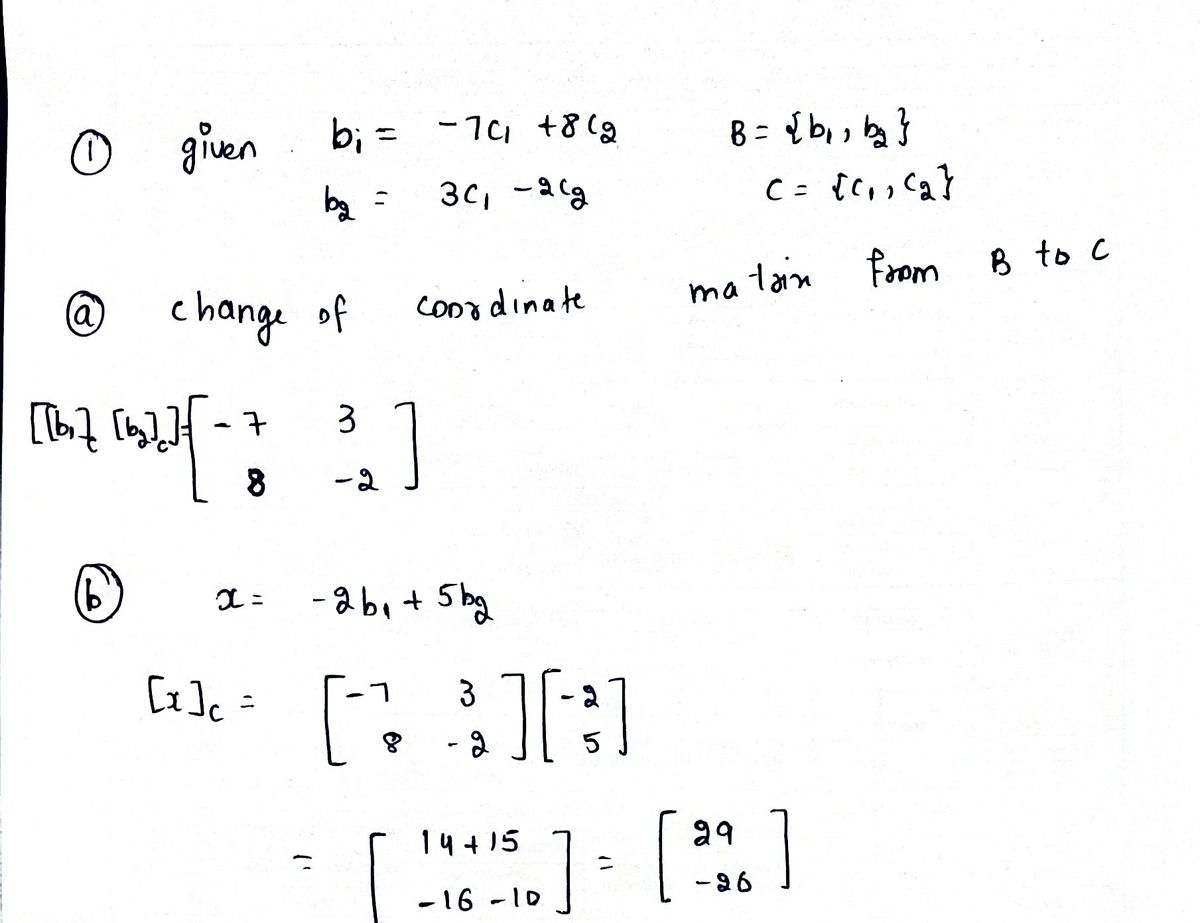 ① given b₁ = -7c₁ + 8c₂ B = {b₁, b₂}
b₂ = 3c₁ - 2c₂ C = {c₁, c₂}
ⓐ change of coordinate matrix from B to C
[[b₁]c [b₂]c] = [ -7 3
8 -2 ]
ⓑ x = -2b₁ + 5b₂
[x]c = [ -7 3 ] [ -2 ]
[ 8 -2 ] [ 5 ]
= [ 14+15 ] = [ 29 ]
[ -16 -10 ] [ -26 ]